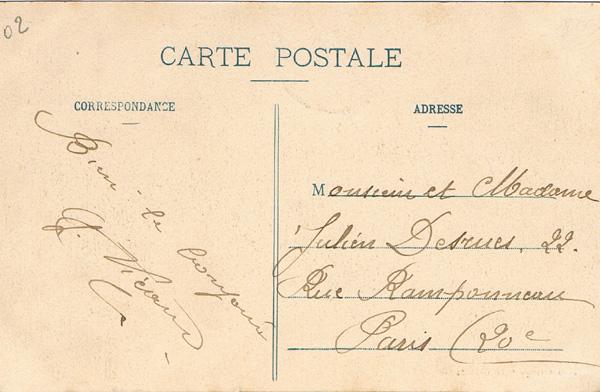 02
CARTE POSTALE
CORRESPONDANCE
Bien le bonjour
ADRESSE
Monsieur et Madame
Julien Desrues, 22.
Rue Ramponneau
Paris (20e